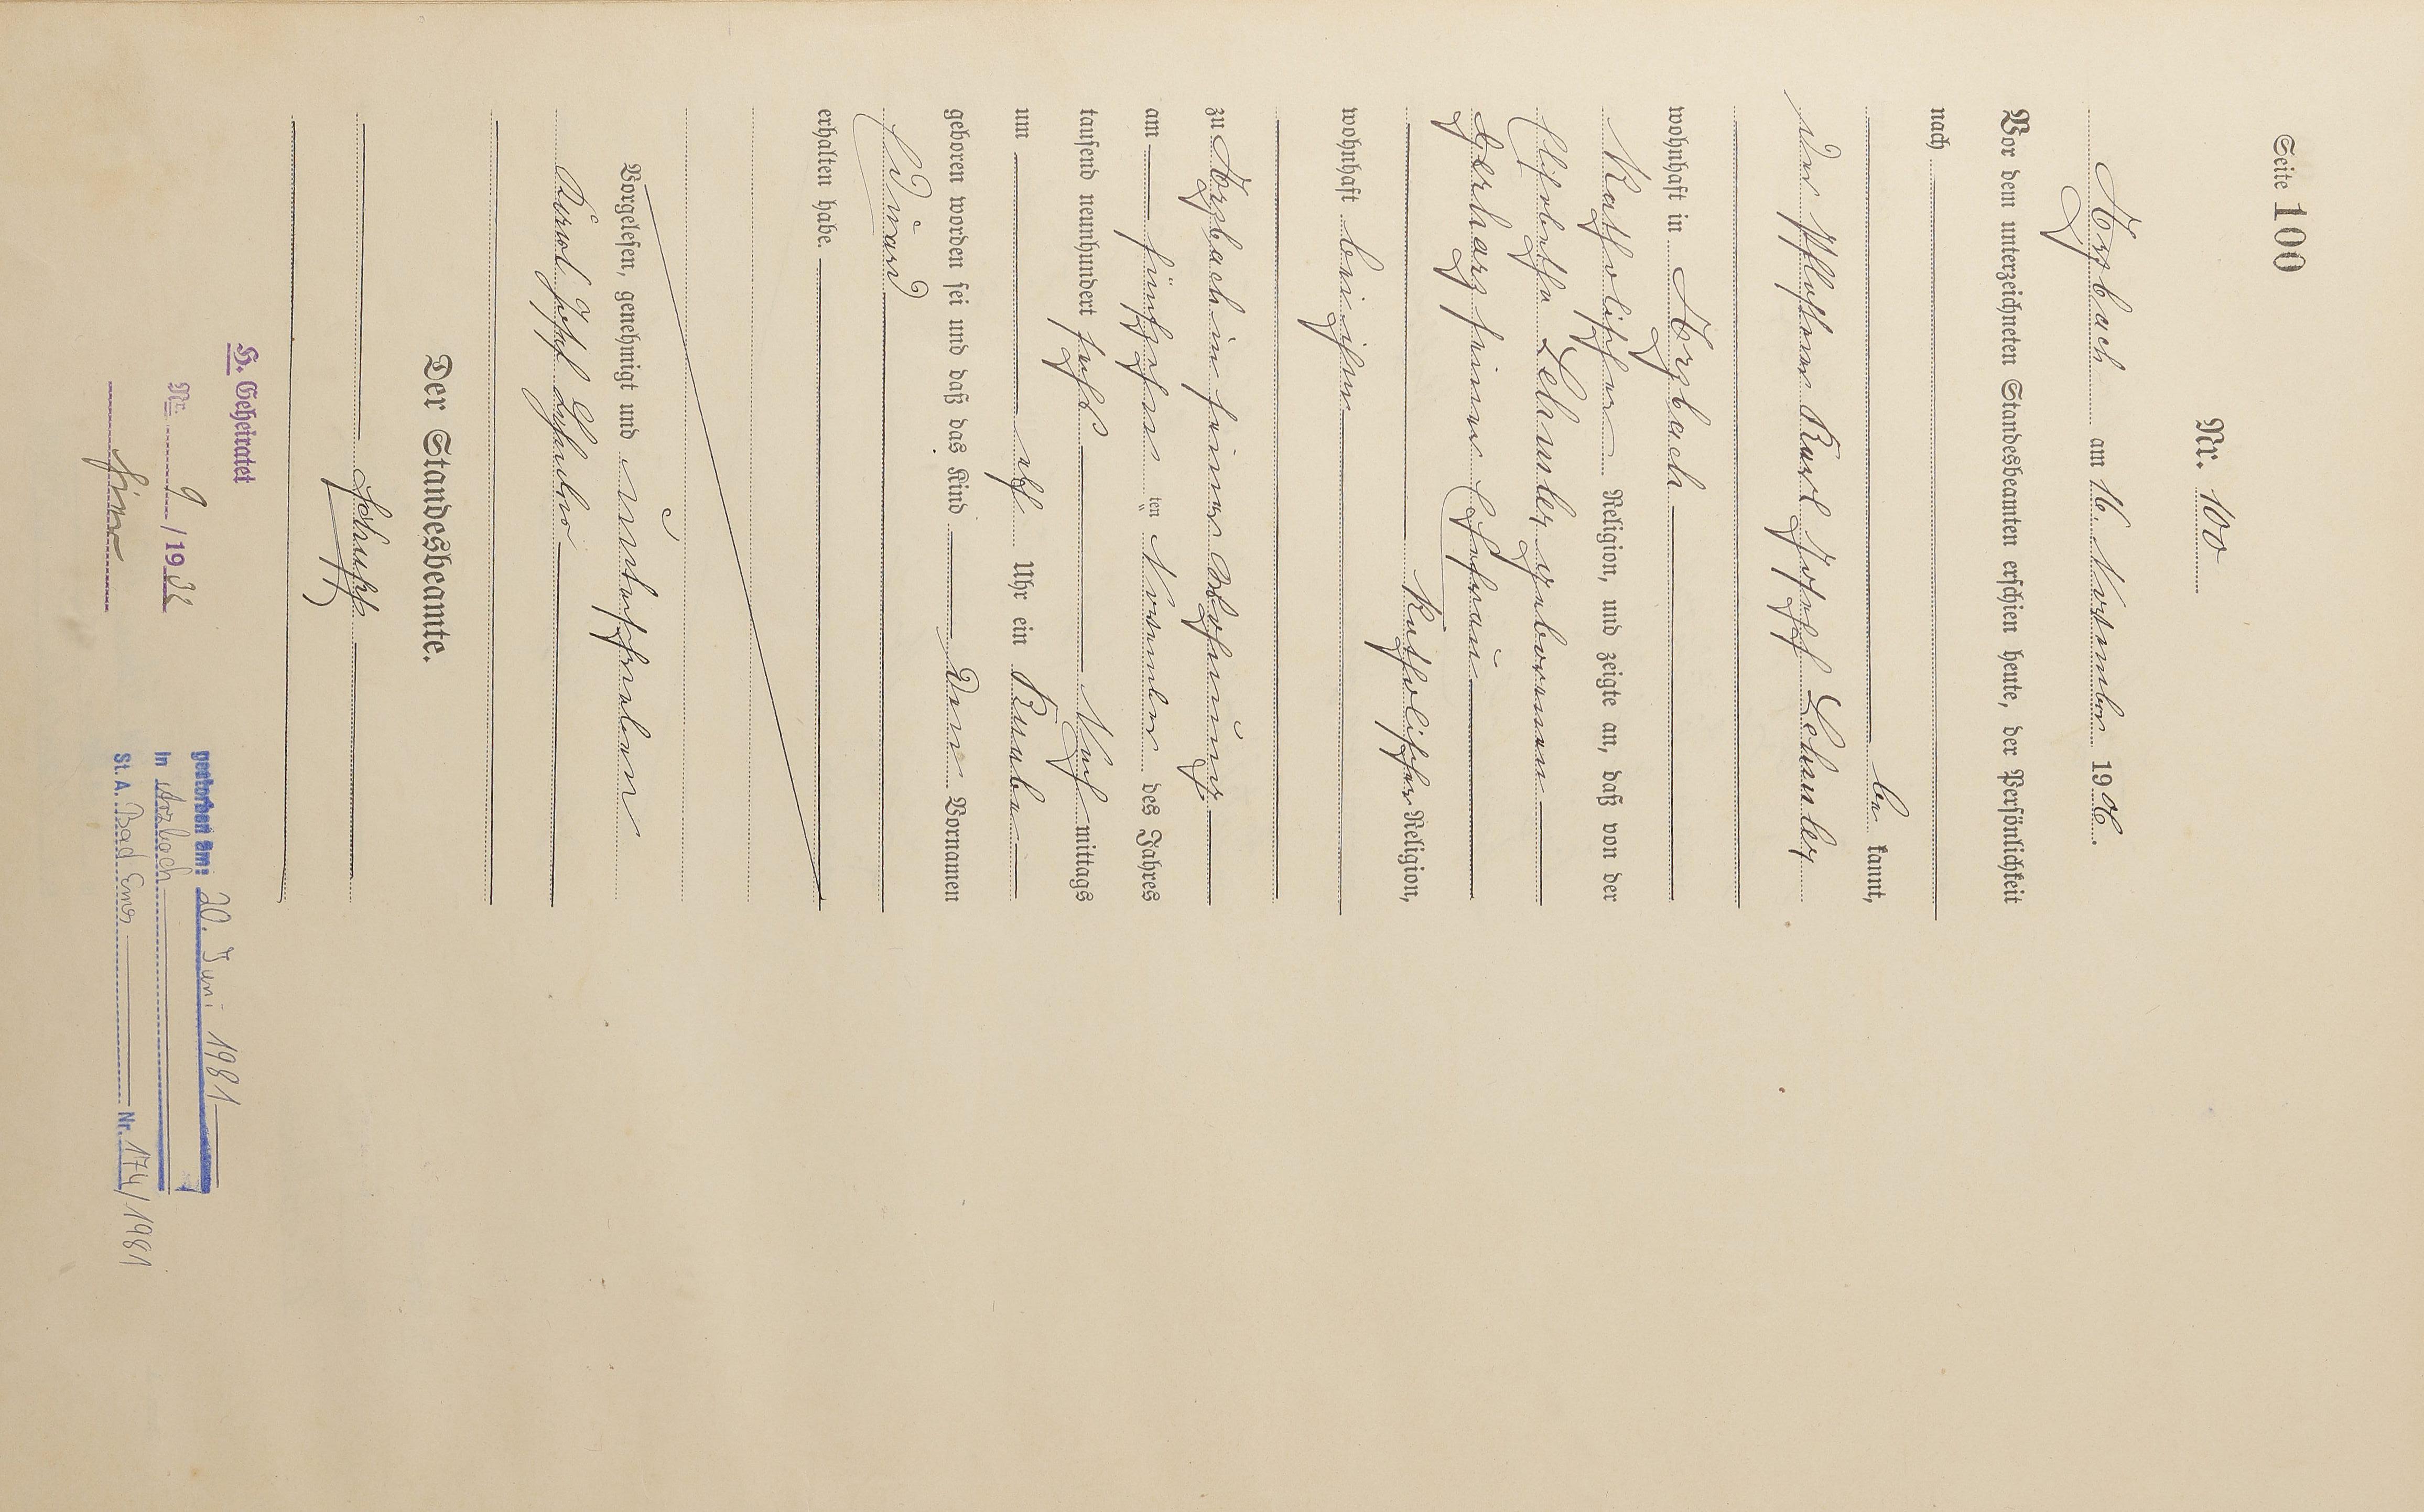 Seite 100
Nr. 100
Arzbach am 16. November 1906.
Vor dem unterzeichneten Standesbeamten erschien heute, der Persönlichkeit
nach
be kannt,
der Karl Josef
wohnhaft in Arzbach
Katholischer Religion, und zeigte an, daß von der
Elisabetha geborenen
Gerharz seiner Ehefrau
Katholischer Religion,
wohnhaft bei ihm
zu Arzbach in seiner Wohnung
am fünfzehn ten November des Jahres
tausend neunhundert sechs Nach mittags
um elf Uhr ein Knabe
geboren worden sei und daß das Kind den Vornamen
Eduard
erhalten habe.
Vorgelesen, genehmigt und unterschrieben
Karl Josef
Der Standesbeamte.
Schupp
H. Geheiratet
Nr. 9 /1932
hier
gestorben am: 20. Juni 1981
in Arzbach
St. A. Bad Ems Nr. 174/1981